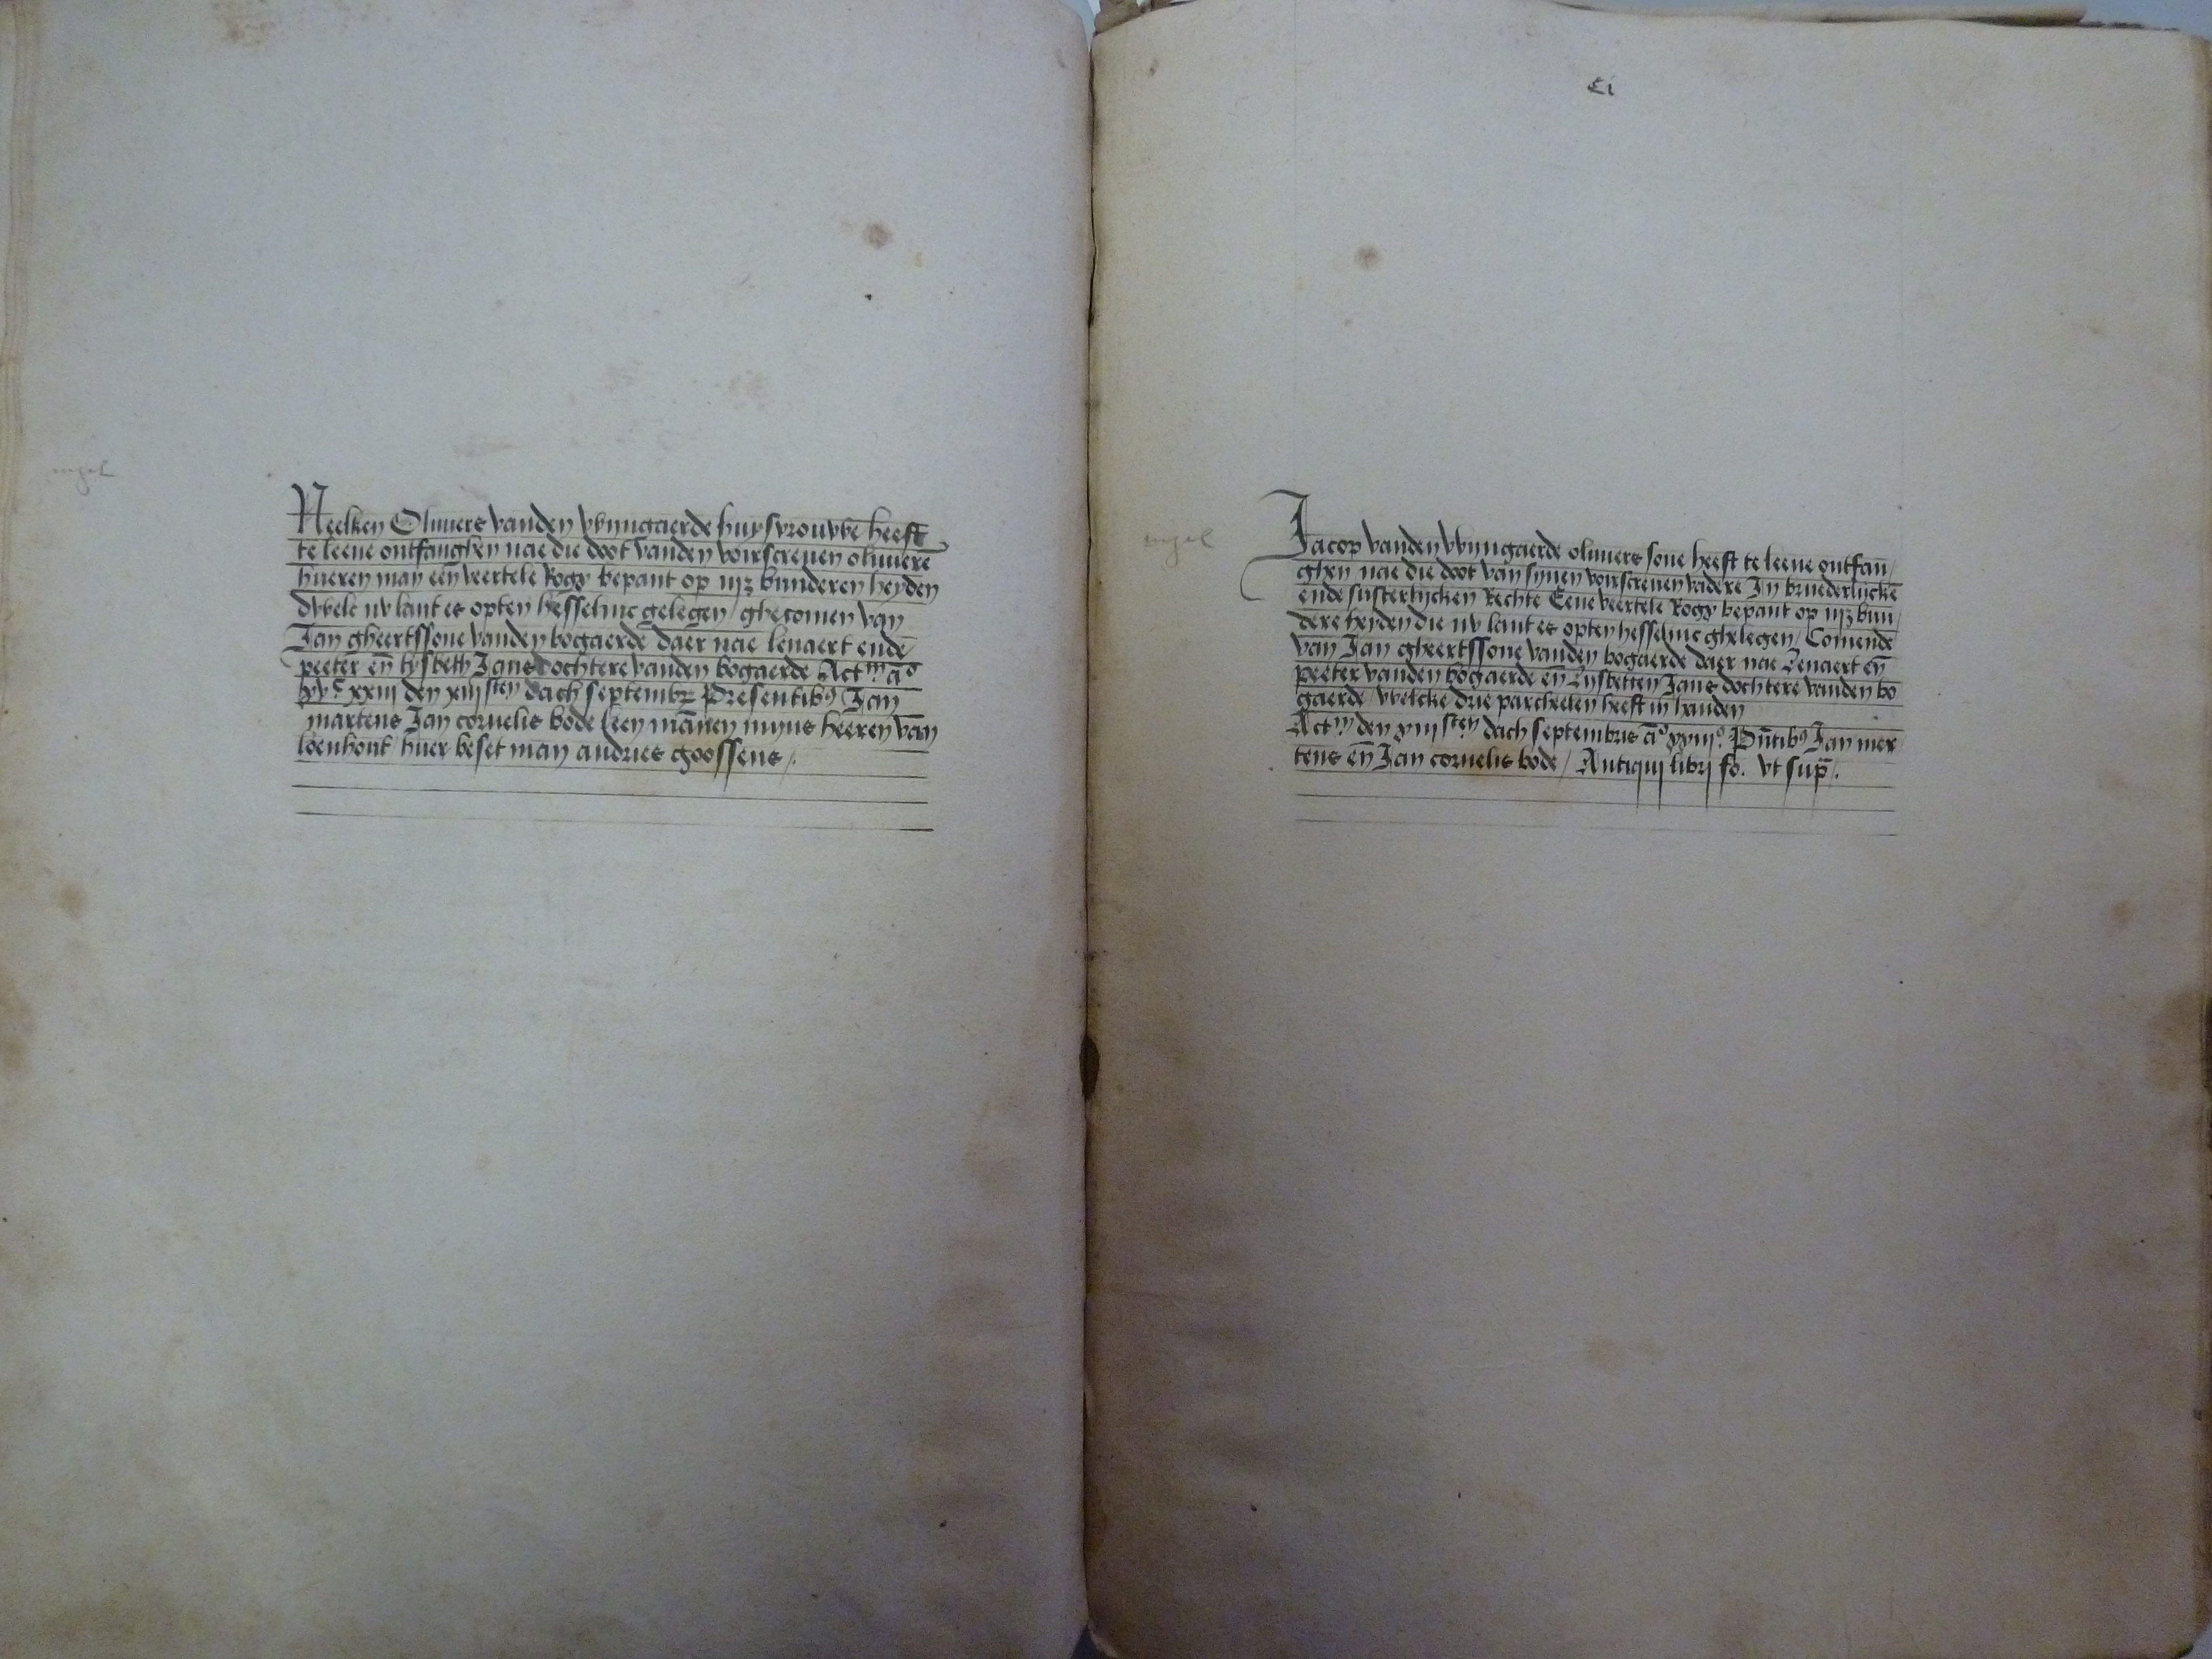 Neelken Oliuiers vanden wijngaerde huysvrouwe heeft
te leene ontfanghen nae die doot vanden voirscreuen oliuiere
hueren man een veertele Rogs bepant op iijz bunderen heyden
dwelc nv lant es opten hesselinc gelegen / ghecomen van
Jan gheertssone vanden bogaerde daer nae lenaert ende
peeter en̄ lysbeth Jans dochtere vanden bogaerde Actm ao
xvc xxiij den xiijsten dach septembr Presentibus Jan
martens Jan cornelis bode leen mānen mijns heeren van
loenhout huer beset man andries goossens /.
Ci
Jacop vanden wijngaerde oliuiers sone heeft te leene ontfan
ghen nae die doot van synen voirscreuen vadere In bruederlijcke
ende susterlijcken Rechte Eene veertele Rogs bepant op iijz bun
dere heyden die nv lant es opten hesselinc ghelegen / Comende
van Jan gheertssone vanden bogaerde daer nae Lenaert en̄
peeter vanden bogaerde en̄ Lysbetten Jans dochtere vanden bo
gaerde / welcke drie parcheelen heeft in handen
Actm den xiijsten dach septembris ao xxiijo Pn̄tibus Jan mer
tens en̄ Jan cornelis bode / Antiqui libri fo. vt sup̄ /.